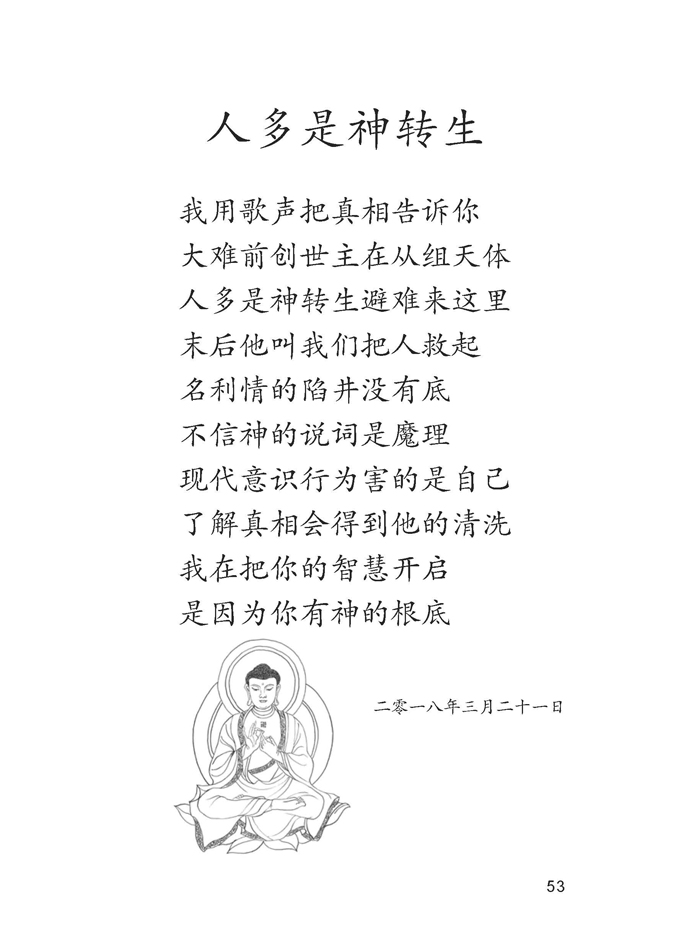 人多是神转生
我用歌声把真相告诉你
大难前创世主在从组天体
人多是神转生避难来这里
末后他叫我们把人救起
名利情的陷井没有底
不信神的说词是魔理
现代意识行为害的是自己
了解真相会得到他的清洗
我在把你的智慧开启
是因为你有神的根底
二零一八年三月二十一日
53